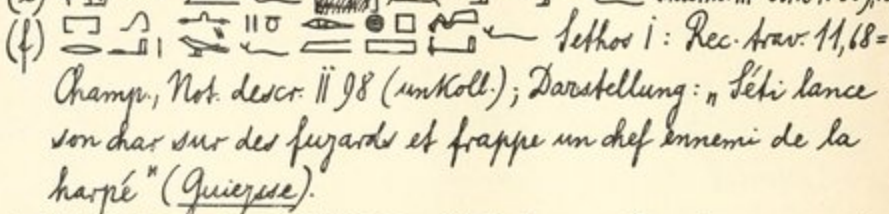 (f) Sethos I: Rec. trav. 11,68=
Champ., Not. descr. II 98 (unkoll.); Darstellung: „Séti lance
son char sur des fuyards et frappe un chef ennemi de la
harpé" (Guieysse).